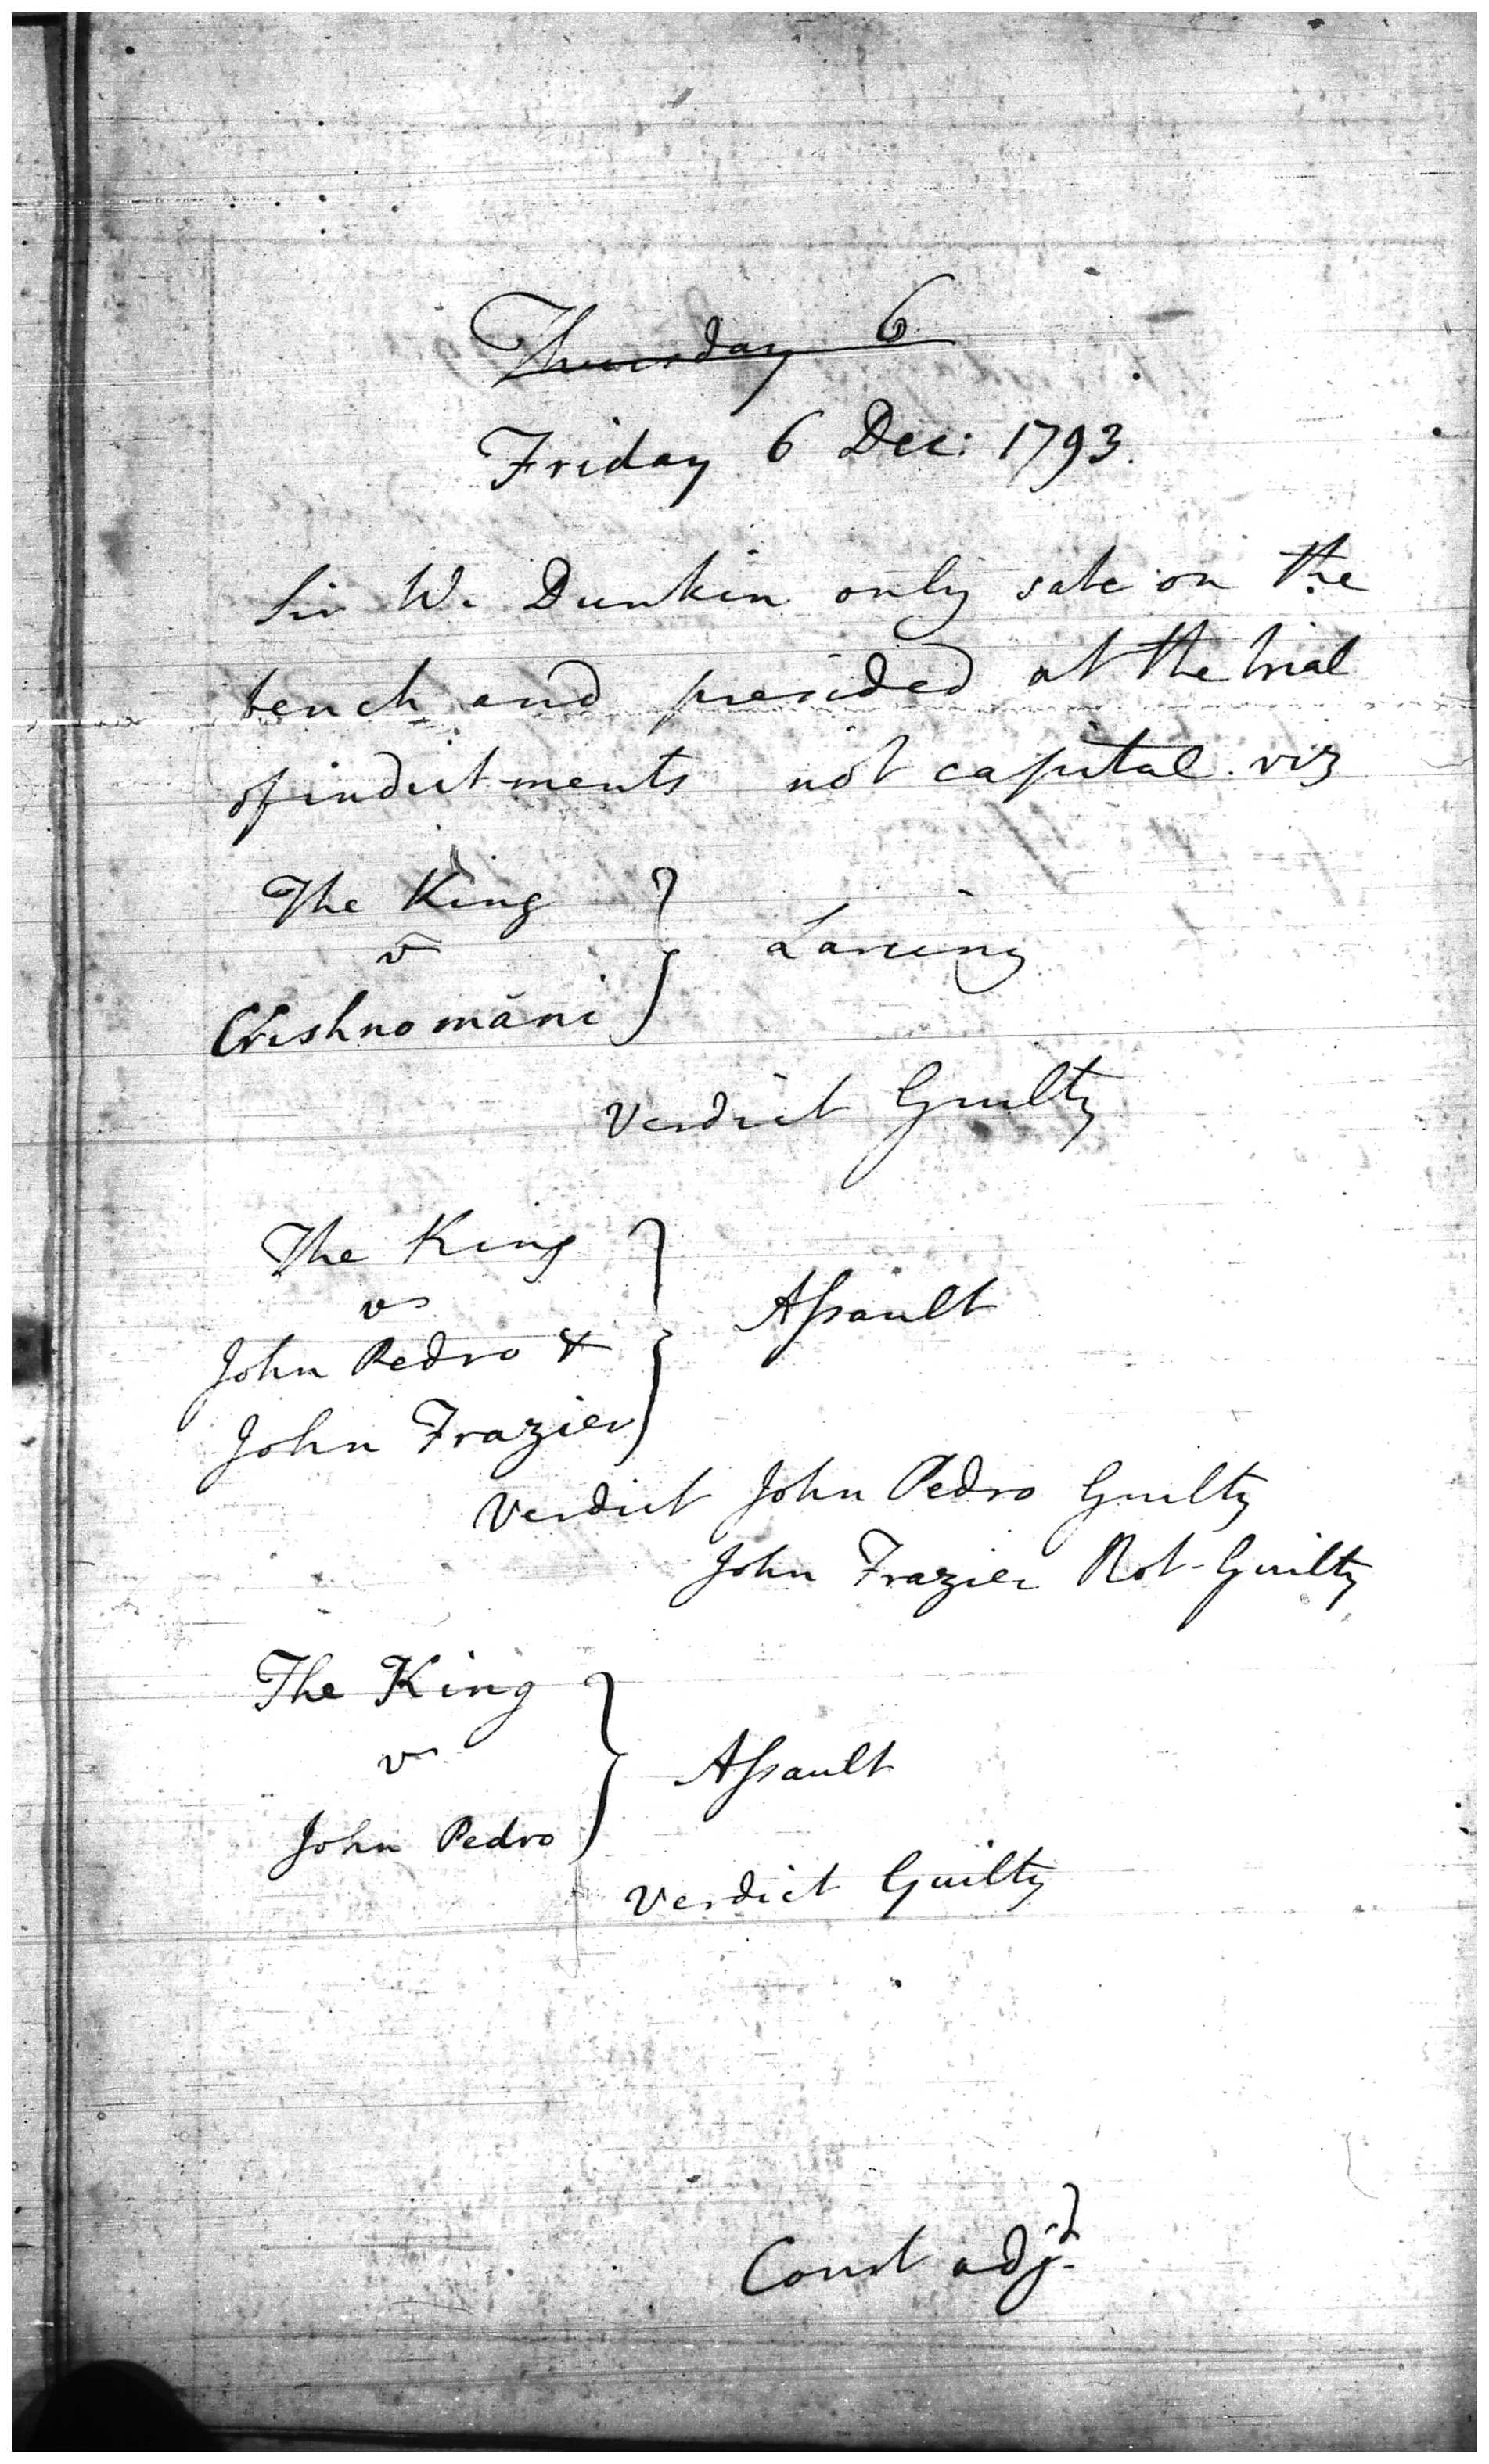 Thursday 6
Friday 6 Dec: 1793.
Sir W. Dunkin only sate on the
bench and presided at the trial
of indictments not capital. viz
The King
v
Crishnomāni
} Larceny
Verdict Guilty
The King
vs
John Pedro &
John Frazier
} Assault
Verdict John Pedro Guilty
John Frazier Not Guilty
The King
v
John Pedro
} Assault
Verdict Guilty
Court adjd